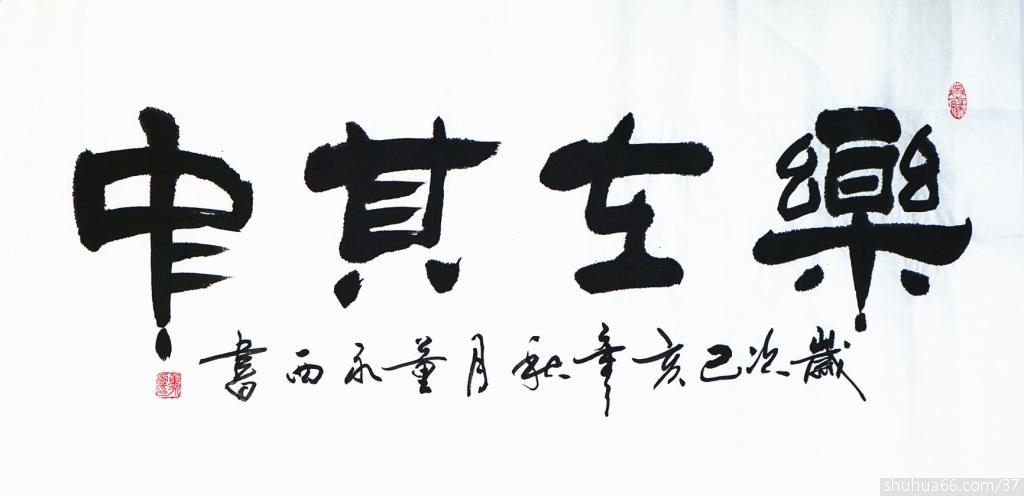 樂在其中
歲次己亥年秋月董永西書
shuhua66.com/37